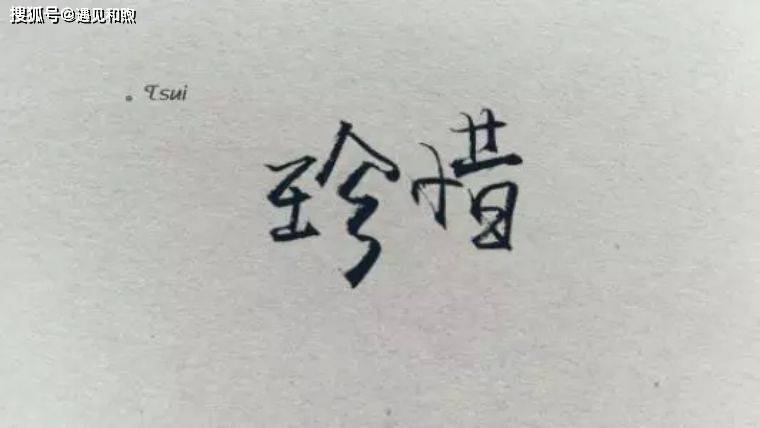 搜狐号@遇见和煦
。Tsui
珍惜